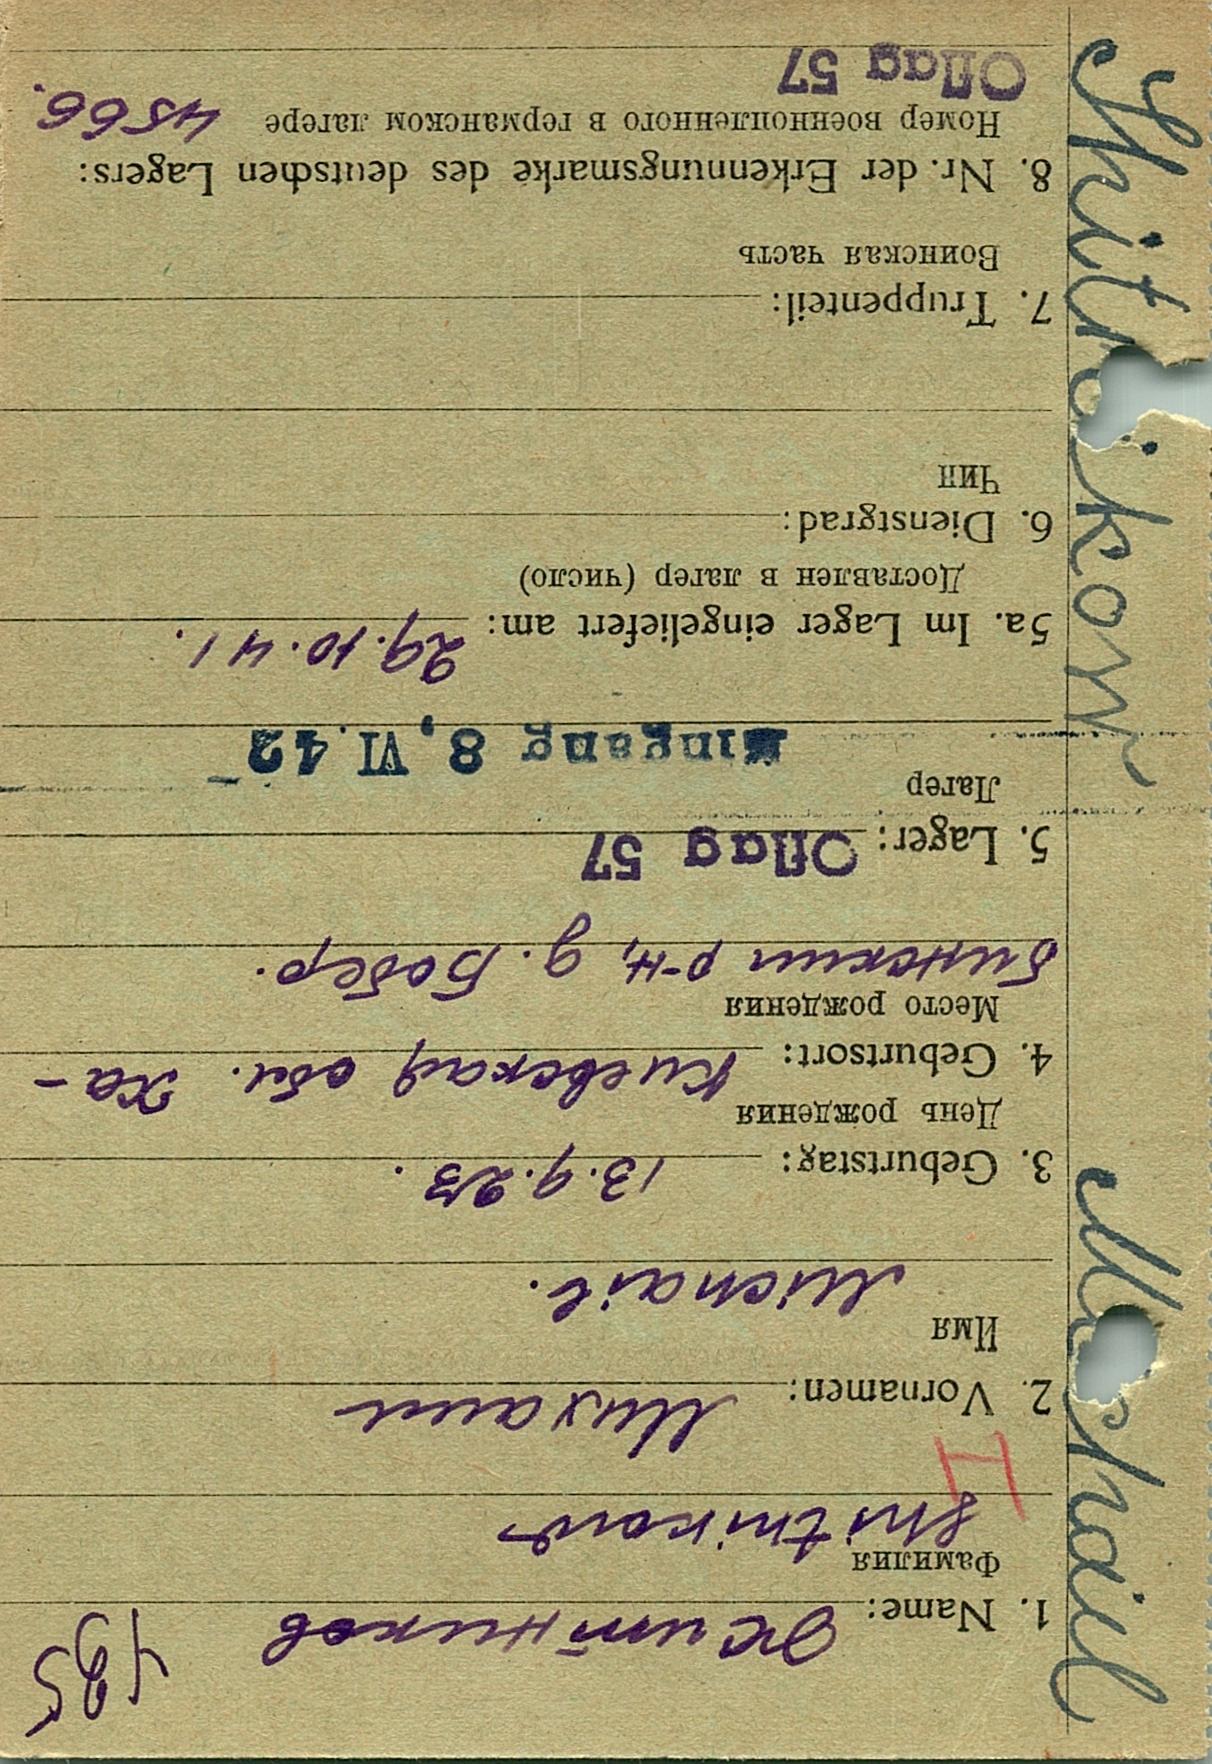 195
1. Name: Житников
Фамилия
Shitnikow
I
2. Vornamen: Михаил
Имя
Michail.
3. Geburtstag: 13.9.23.
День рождения
4. Geburtsort: Киевская обл. Ха-
Место рождения
бинский р-н, д. Бобер.
5. Lager: Oflag 57
Лагер
Eingang 8. VI. 42
5a. Im Lager eingeliefert am: 29.10.41.
Доставлен в лагер (число)
6. Dienstgrad:
Чин
7. Truppenteil:
Воинская часть
8. Nr. der Erkennungsmarke des deutschen Lagers:
Номер военнопленного в германском лагере 4566.
Oflag 57
Shitnikow Michail